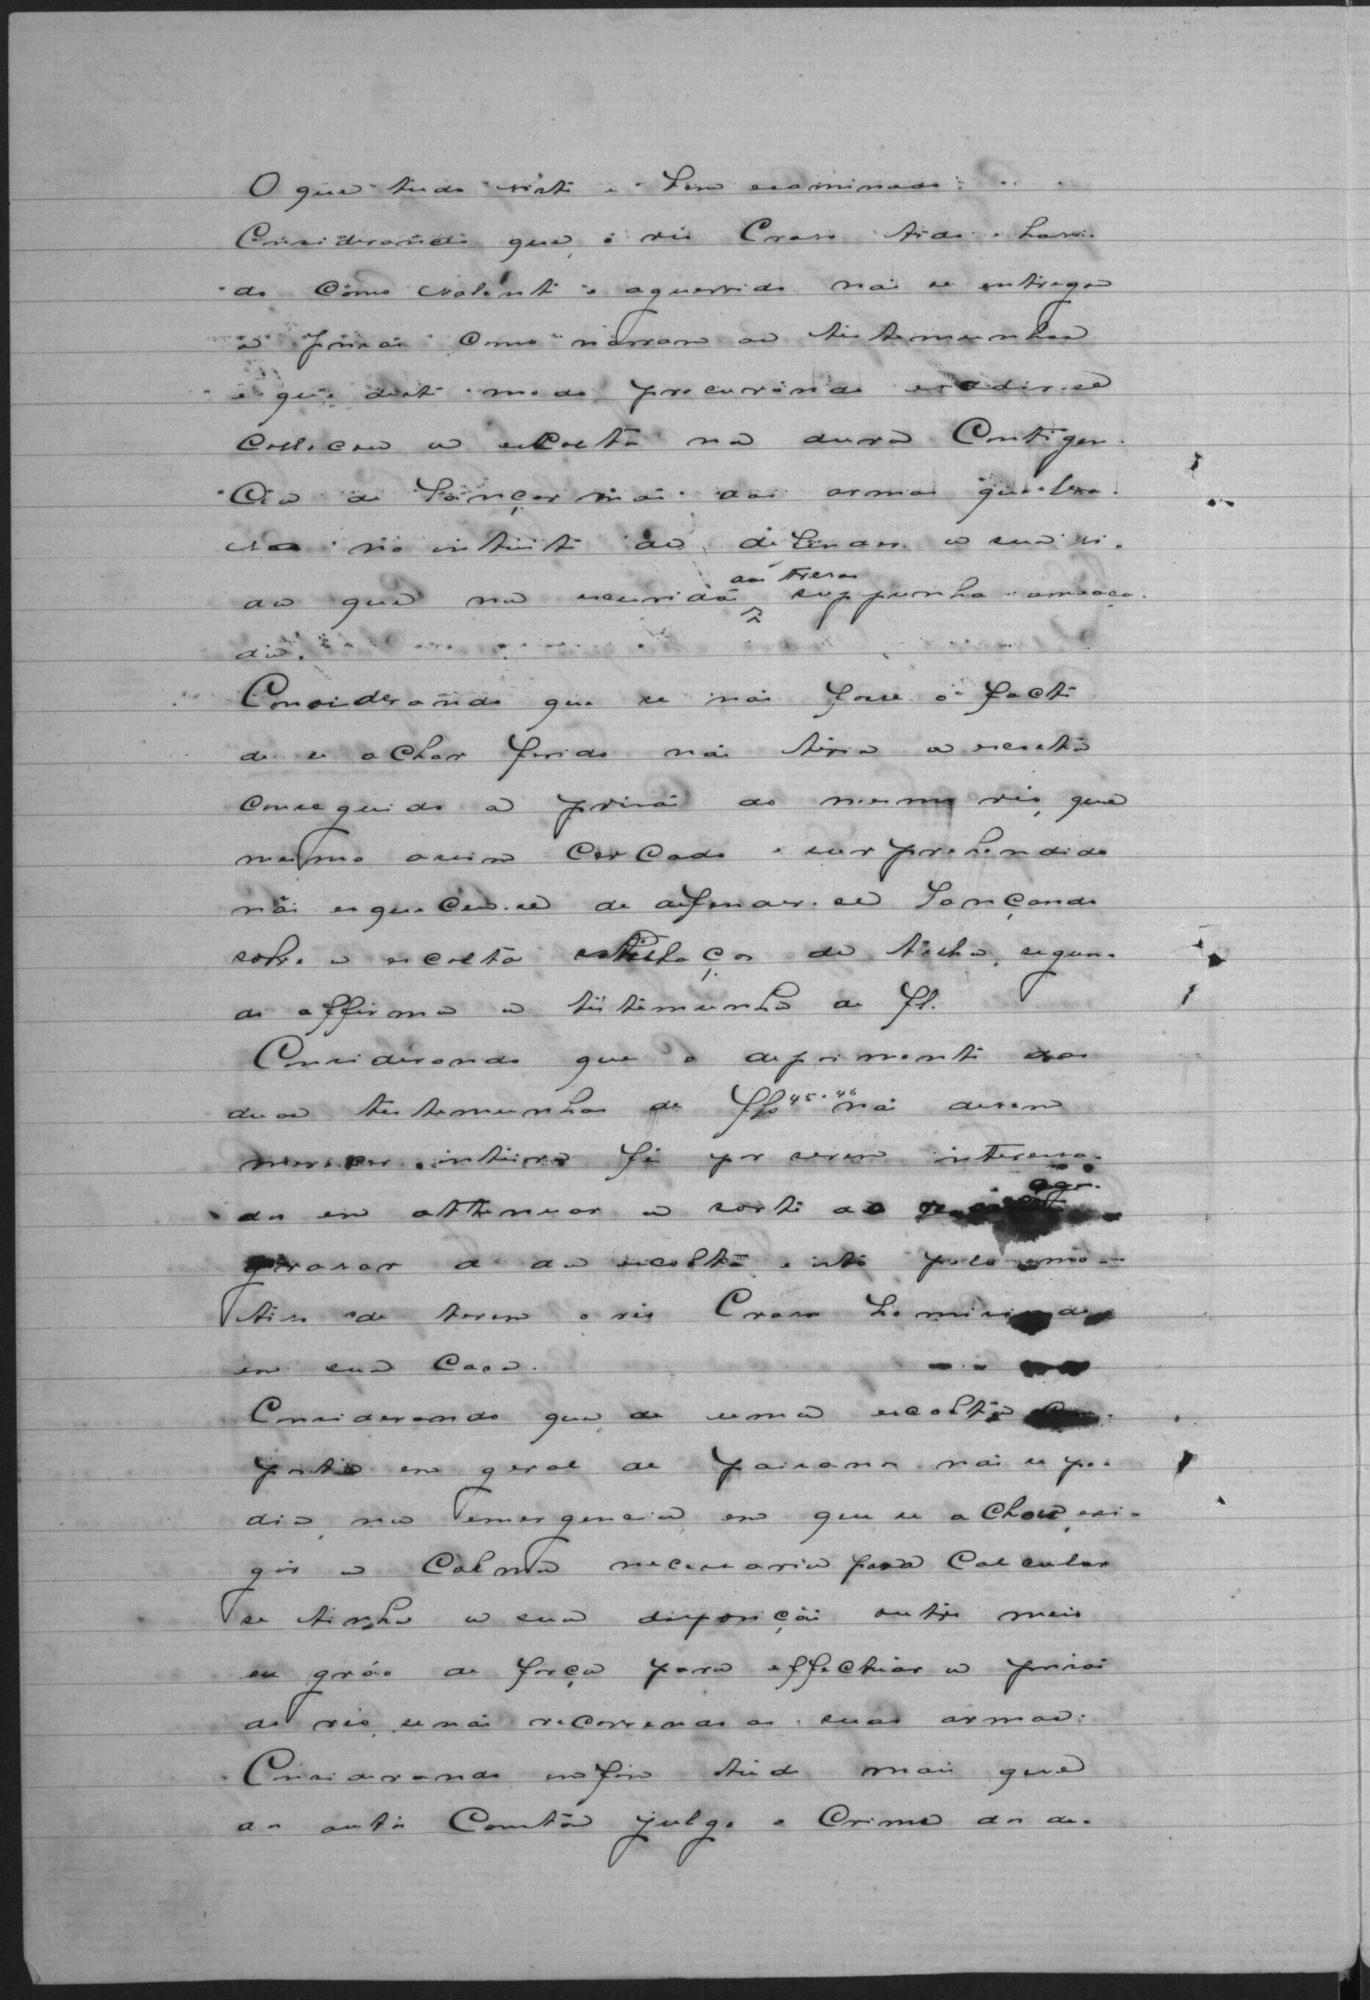 O que tudo visto e bem examinado:
Considerando que, o réo Cravo tido e havi-
do como valente e aguerrido não se entrega
a prisão como narram as testemunhas
e que deste modo procurando evadir-se
collocou a escolta na dura Contigen-
cia de lançar mão das armas que leva-
va no intuito de defender a sua vi-
da que na escuridão das trevas suppunha ameaça-
da.
Considerando que se não fosse o facto
de se achar ferido não teria a escolta
conseguido a prisão do mesmo réo, que
mesmo assim cercado e surprehendido
não esqueceu-se de defender-se lançando
sobre a escolta estilhaços de telha, segun-
do affirma a testemunha de fl.
Considerando que o depoimento das
duas testemunhas de fls 45 e 46 não devem
merecer inteira fé por serem interessa-
das em attenuar a sorte do aggra-
gravar a da escolta, isto pelo mo-
tivo de terem o réo Cravo homisiado
em sua casa.
Considerando que, de uma escolta com-
posta em geral de paisanos não se po-
dia, na emergencia em que se achou, exi-
gir a calma necessaria para calcular
se tinha a sua disposição outro meio
ou gráo de força para effectuar a prisão
do réo, senão recorrendo as suas armas:
Considerando emfim tudo mais que
dos autos consta julgo o crime dos de-